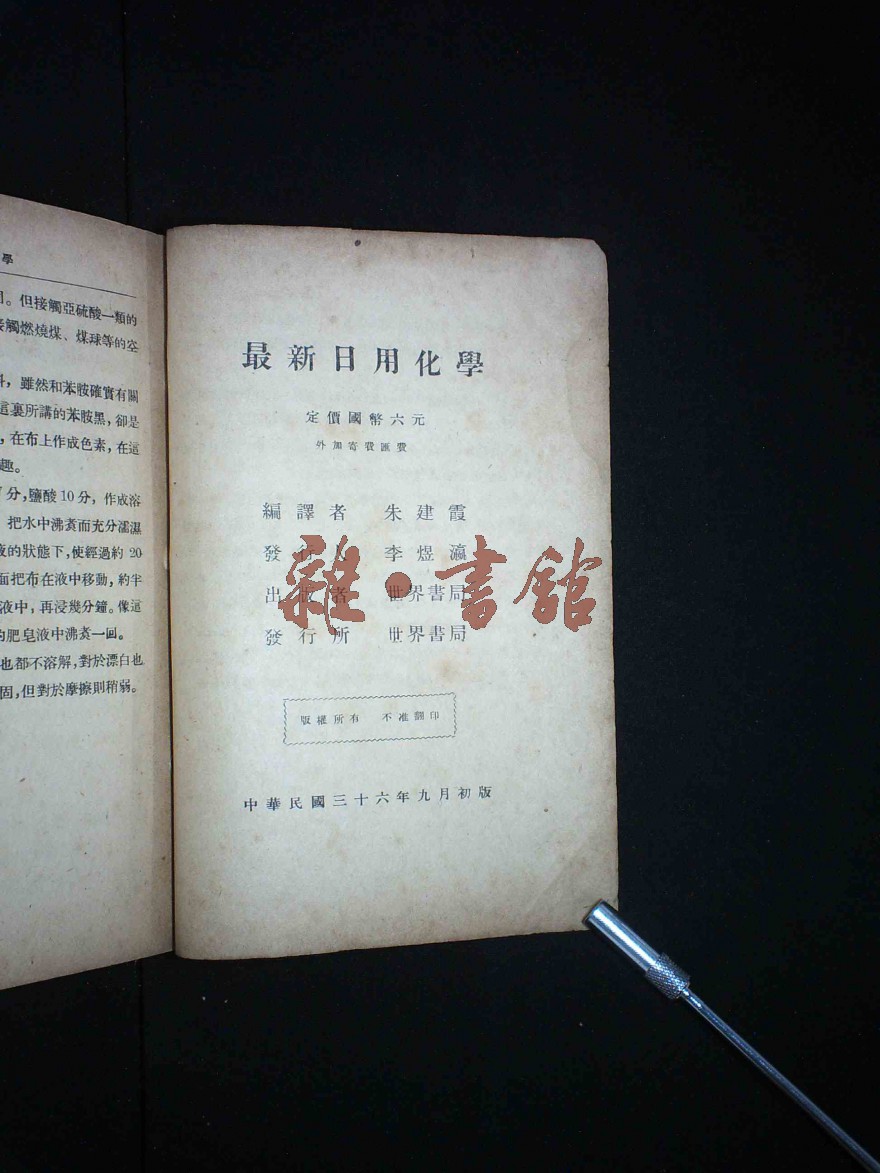 學
。但接觸亞硫酸一類的
接觸燃燒煤、煤球等的空
料，雖然和苯胺確實有關
這裏所講的苯胺黑，卻是
，在布上作成色素，在這
趣。
分，鹽酸10分，作成溶
把水中沸煑而充分濡濕
液的狀態下，使經過約20
面把布在液中移動，約半
液中，再浸幾分鐘。像這
的肥皂液中沸煑一回。
也都不溶解，對於漂白也
固，但對於摩擦則稍弱。
最新日用化學
定價國幣六元
外加寄費匯費
編譯者 朱建霞
發行人 李煜瀛
出版者 世界書局
發行所 世界書局
雜·書館
版權所有 不准翻印
中華民國三十六年九月初版